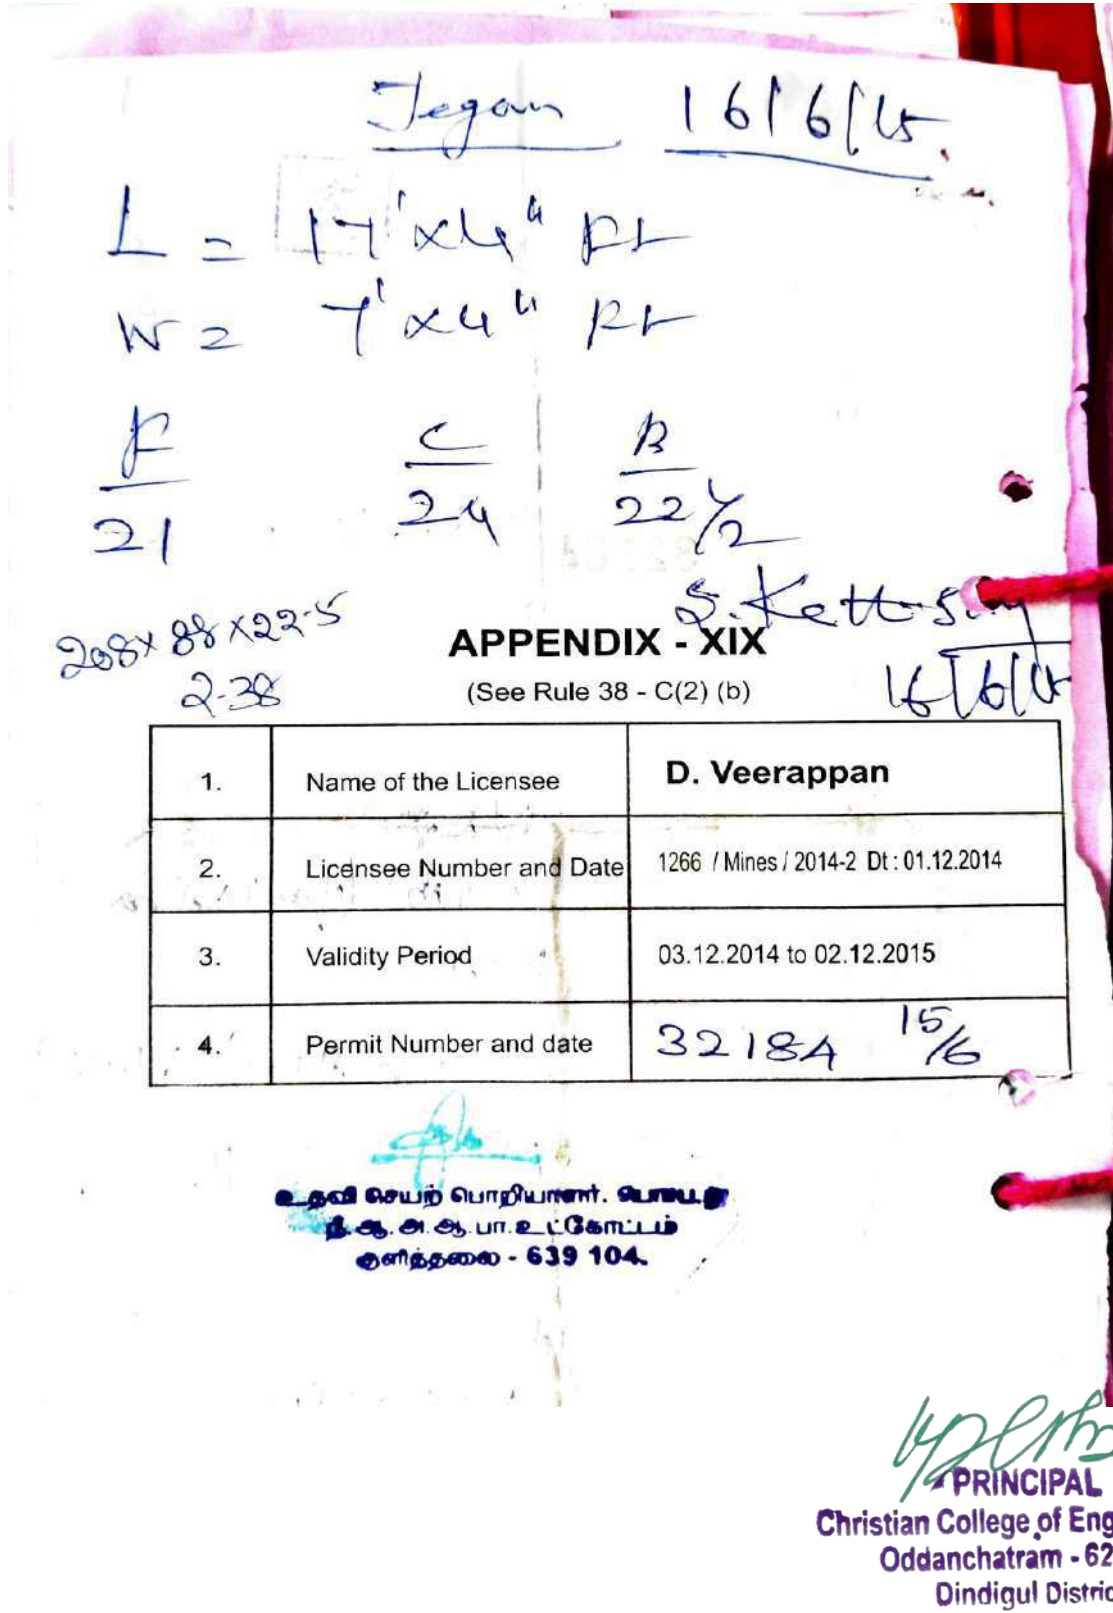 Jegan 16/6/15
L = 17' x 4" Ft
W = 7' x 4" Ft
F C B
21 24 22 1/2
208 x 88 x 22.5
2.38
16/6/15
APPENDIX - XIX
(See Rule 38 - C(2) (b)
1. Name of the Licensee D. Veerappan
2. Licensee Number and Date 1266 / Mines / 2014-2 Dt : 01.12.2014
3. Validity Period 03.12.2014 to 02.12.2015
4. Permit Number and date 32184 15/6
உதவி செயற் பொறியாளர்.
நீ.ஆ.அ.ஆ.பா.உட்கோட்டம்
குளித்தலை - 639 104.
PRINCIPAL
Christian College of Eng
Oddanchatram - 62
Dindigul Distric